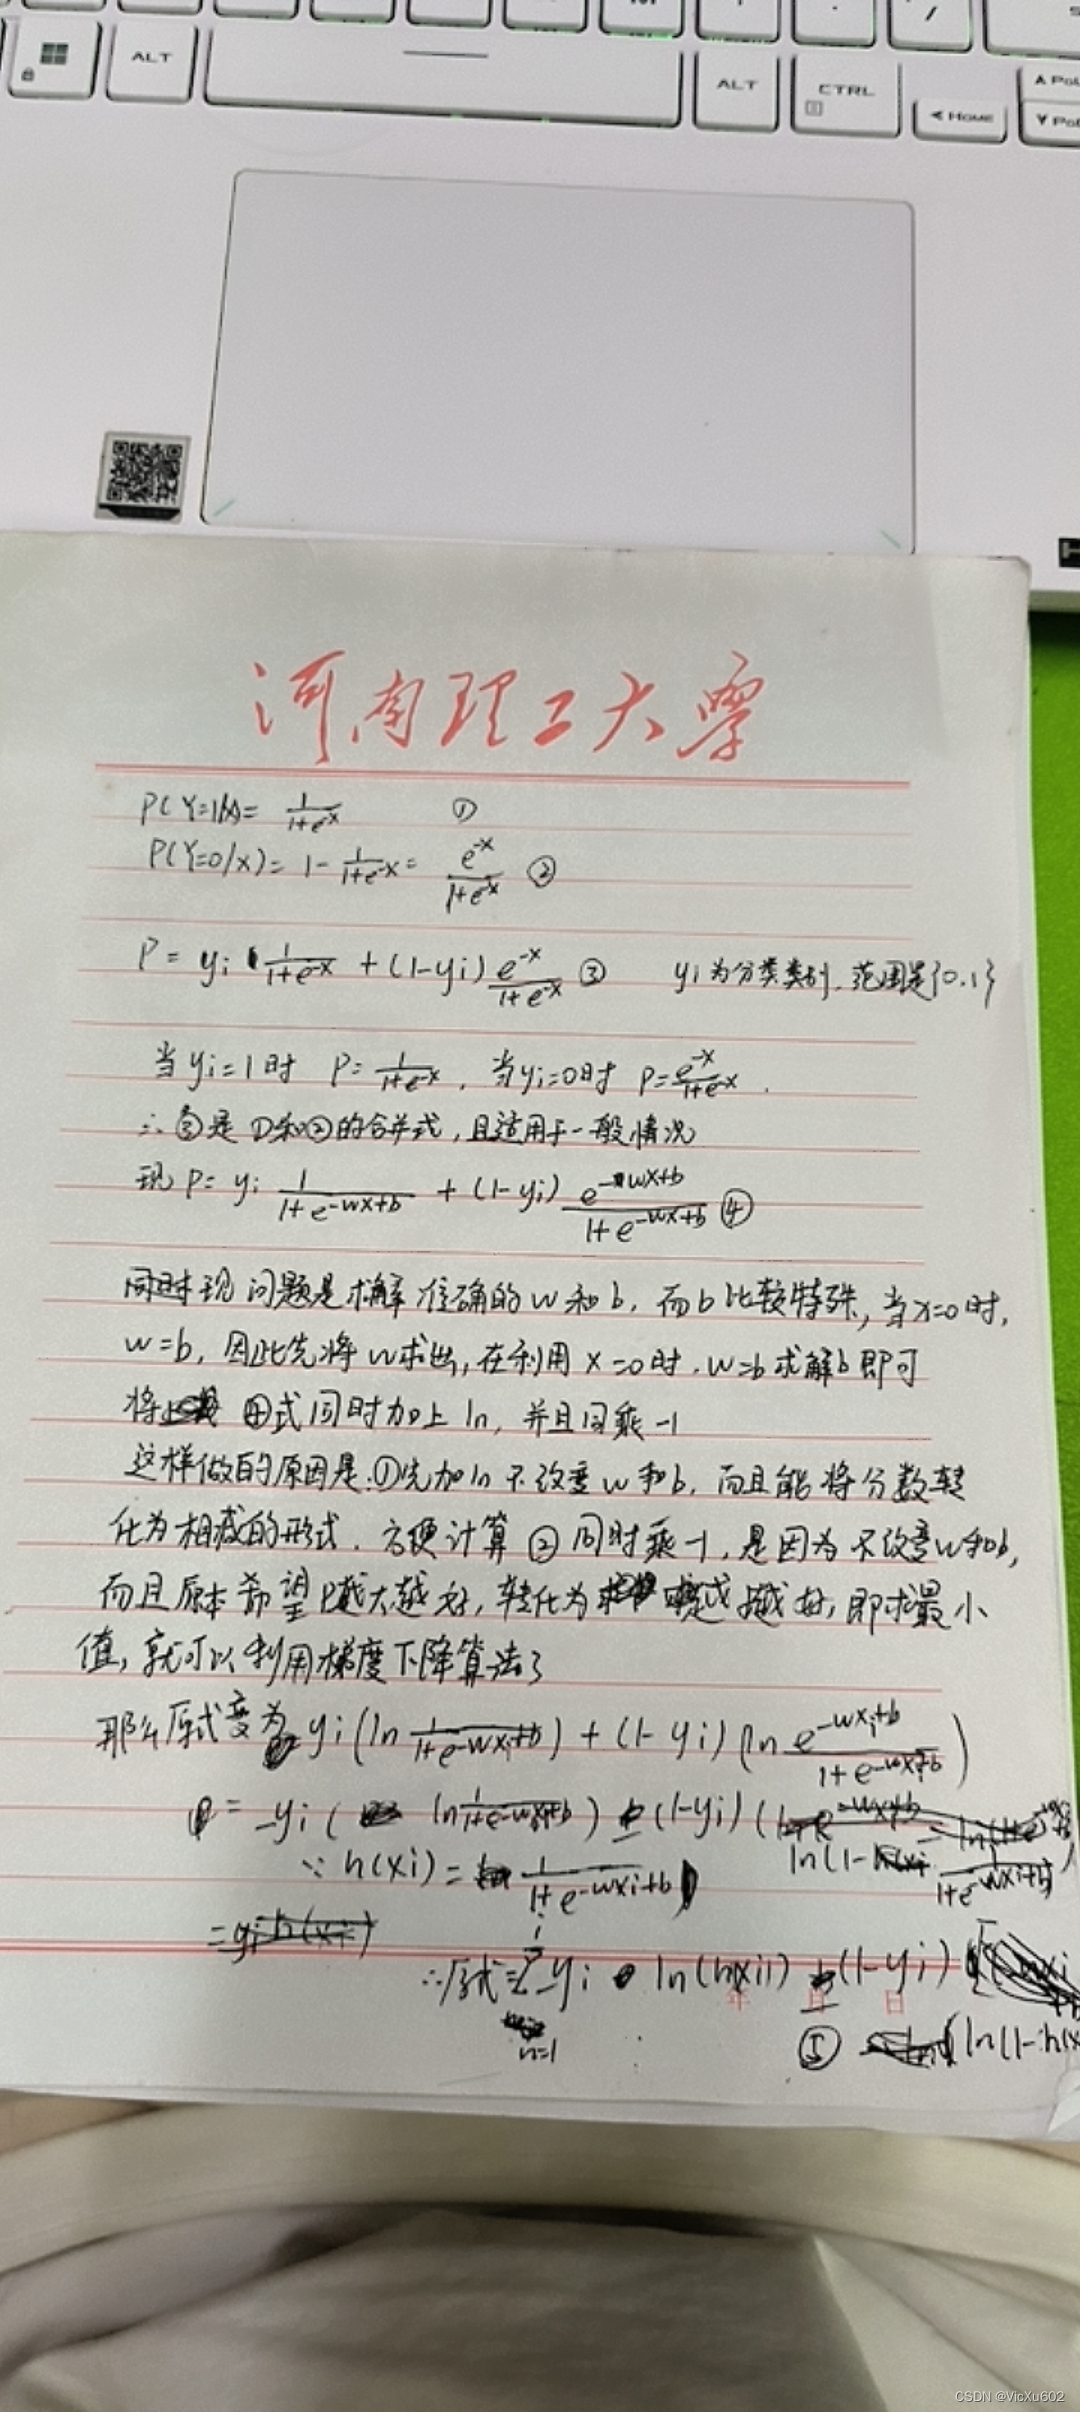 ALT
ALT
CTRL
HOME
河南理工大學
P(Y=1/x)= 1/(1+e^-x) ①
P(Y=0/x)= 1- 1/(1+e^-x) = e^-x/(1+e^-x) ②
P= yi 1/(1+e^-x) +(1-yi) e^-x/(1+e^-x) ③ yi为分类类别,范围是{0.1}
当yi=1时 P= 1/(1+e^-x) , 当yi=0时 P= e^-x/(1+e^-x) .
∴ ③是①和②的合并式,且适用于一般情况
现 P= yi 1/(1+e^-wx+b) +(1-yi) e^-wx+b/(1+e^-wx+b) ④
同时现问题是求解准确的w和b,而b比较特殊,当x=0时,
w=b,因此先将w求出,在利用x=0时.w=b求解b即可
将 ④式同时加上ln,并且同乘-1
这样做的原因是.①先加ln不改变w和b,而且能将分数转
化为相减的形式.方便计算 ②同时乘-1,是因为不改变w和b,
而且原本希望P越大越好,转化为 越 越好,即求最小
值,就可以利用梯度下降算法了
那么原式变为 yi(ln 1/(1+e^-wxi+b)) +(1-yi)(ln e^-wxi+b/(1+e^-wxi+b))
= -yi( ln 1/(1+e^-wxi+b)) -(1-yi)( ln(1- 1/(1+e^-wxi+b))
∵ h(xi)= 1/(1+e^-wxi+b)
∴原式= Σ -yi ln(h(xi)) -(1-yi)
年 月 日
n=1
⑤ (ln(1-h(x
CSDN @VicXu602